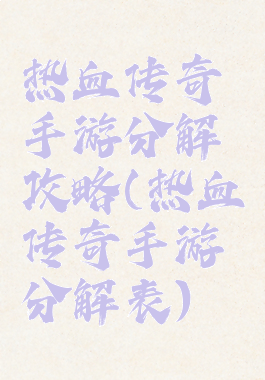 热血传奇
手游分解
攻略(热血
传奇手游
分解表)